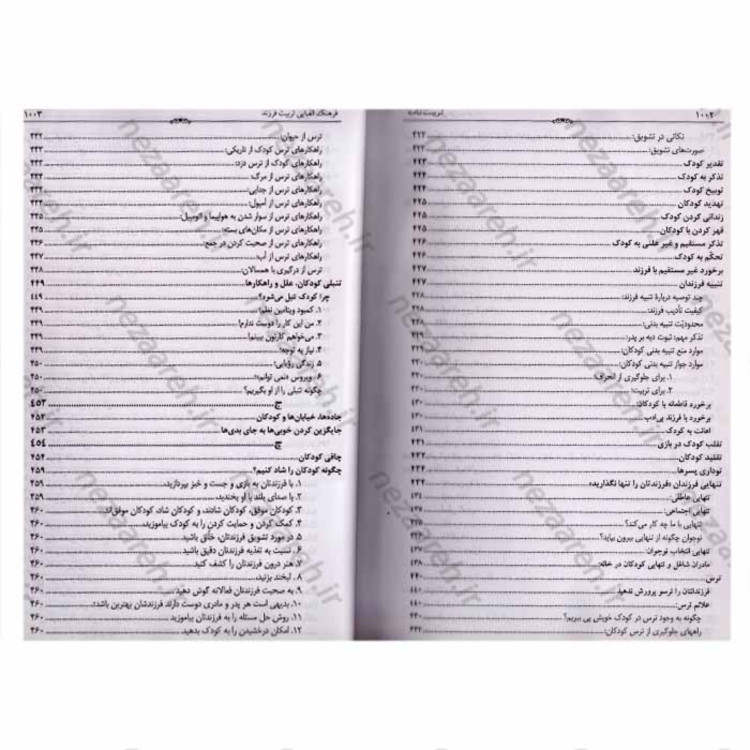 ۱۰۰۲
تربیت
نکاتی در تشویق: ۴۲۲
صورت‌های تشویق: ۴۲۲
تقدیر کودک ۴۲۳
تذکر به کودک ۴۲۴
توبیخ کودک ۴۲۴
تهدید کودکان ۴۲۵
زندانی کردن کودک ۴۲۵
قهر کردن با کودکان ۴۲۵
تذکر مستقیم و غیر علنی به کودک ۴۲۶
تحکّم به کودک ۴۲۶
برخورد غیر مستقیم با فرزند ۴۲۷
تنبیه فرزندان ۴۲۷
چند توصیه دربارهٔ تنبیه فرزند: ۴۲۸
کیفیت تأدیب فرزند: ۴۲۸
محدودیّت تنبیه بدنی: ۴۲۸
تذکر مهم: ثبوت دیه بر پدر: ۴۲۹
موارد منع تنبیه بدنی کودکان: ۴۲۹
موارد جواز تنبیه بدنی کودکان:
۱. برای جلوگیری از انحراف ۴۳۰
۲. برای تربیت: ۴۳۰
برخورد قاطعانه با کودکان: ۴۳۰
برخورد با فرزند بی‌ادب ۴۳۰
اهانت به کودک ۴۳۰
تقلب کودک در بازی ۴۳۱
تقلید کودکان ۴۳۲
توداری پسرها
تنهایی فرزندان «فرزندتان را تنها نگذارید» ۴۳۴
تنهایی عاطفی: ۴۳۴
تنهایی اجتماعی:
تنهایی با ما چه کار می‌کند؟
نوجوان چگونه از تنهایی بیرون بیاید؟
تنهایی انتخاب نوجوران:
مادران شاغل و تنهایی کودکان در خانه: ۴۳۸
ترس ۴۴۰
فرزندانتان را ترسو پرورش ندهید ۴۴۰
علائم ترس: ۴۴۰
چگونه به وجود ترس در کودک خویش پی ببریم؟
راههای جلوگیری از ترس کودکان:
فرهنگ الفبایی تربیت فرزند ۱۰۰۳
ترس از حیوان: ۴۴۲
راهکارهای ترس کودک از تاریکی: ۴۴۲
راهکارهای کودک از ترس دزد: ۴۴۳
راهکارهای ترس از مرگ
راهکارهای ترس از جدایی:
راهکارهای ترس از آمپول:
راهکارهای ترس از سوار شدن به هواپیما و اتومبیل: ۴۴۵
راهکارهای ترس از مکان‌های بسته:
راهکارهای ترس از صحبت کردن در جمع: ۴۴۶
راهکارهای ترس از آب:
ترس از درگیری با همسالان: ۴۴۸
تنبلی کودکان، علل و راهکارها ۴۴۹
چرا کودک تنبل می‌شود؟ ۴۴۹
۱. کمبود ویتامین نظم! ۴۴۹
۲. من این کار را دوست ندارم! ۴۴۹
۳. می‌خواهم کارتون ببینم! ۴۴۹
۴. نیاز به توجه! ۴۴۹
۵. زندگی رؤیایی! ۴۵۰
۶. ویروس «نمی توانم»! ۴۵۰
چگونه تنبلی را از او بگیریم؟ ۴۵۰
ج ۴۵۳
جاده‌ها، خیابان‌ها و کودکان ۴۵۳
جایگزین کردن خوبی‌ها به جای بدی‌ها ۴۵۳
چ ۴۵۴
چاقی کودکان ۴۵۴
چگونه کودکان را شاد کنیم؟ ۴۵۹
۱. با فرزندتان به بازی و جست و خیز بپردازید. ۴۵۹
۲. با صدای بلند با او بخندید. ۴۵۹
۳. کودکان موفق، کودکان شادند، و کودکان شاد، کودکان موفق‌ترند ۴۶۰
۴. کمک کردن و حمایت کردن را به کودک بیاموزید. ۴۶۰
۵. در مورد تشویق فرزندتان، خلّاق باشید ۴۶۰
۶. نسبت به تغذیه فرزندتان دقیق باشید ۴۶۰
۷. هنر درون فرزندتان را کشف کنید ۴۶۰
۸. لبخند بزنید. ۴۶۰
۹. به صحبت فرزندتان فعالانه گوش دهید ۴۶۰
۱۰. بدیهی است هر پدر و مادری دوست دارند فرزندشان بهترین باشد؛ ۴۶۰
۱۱. روش حل مسئله را به فرزندتان بیاموزید ۴۶۰
۱۲. امکان درخشیدن را به کودک بدهید. ۴۶۰
nezaareh.ir